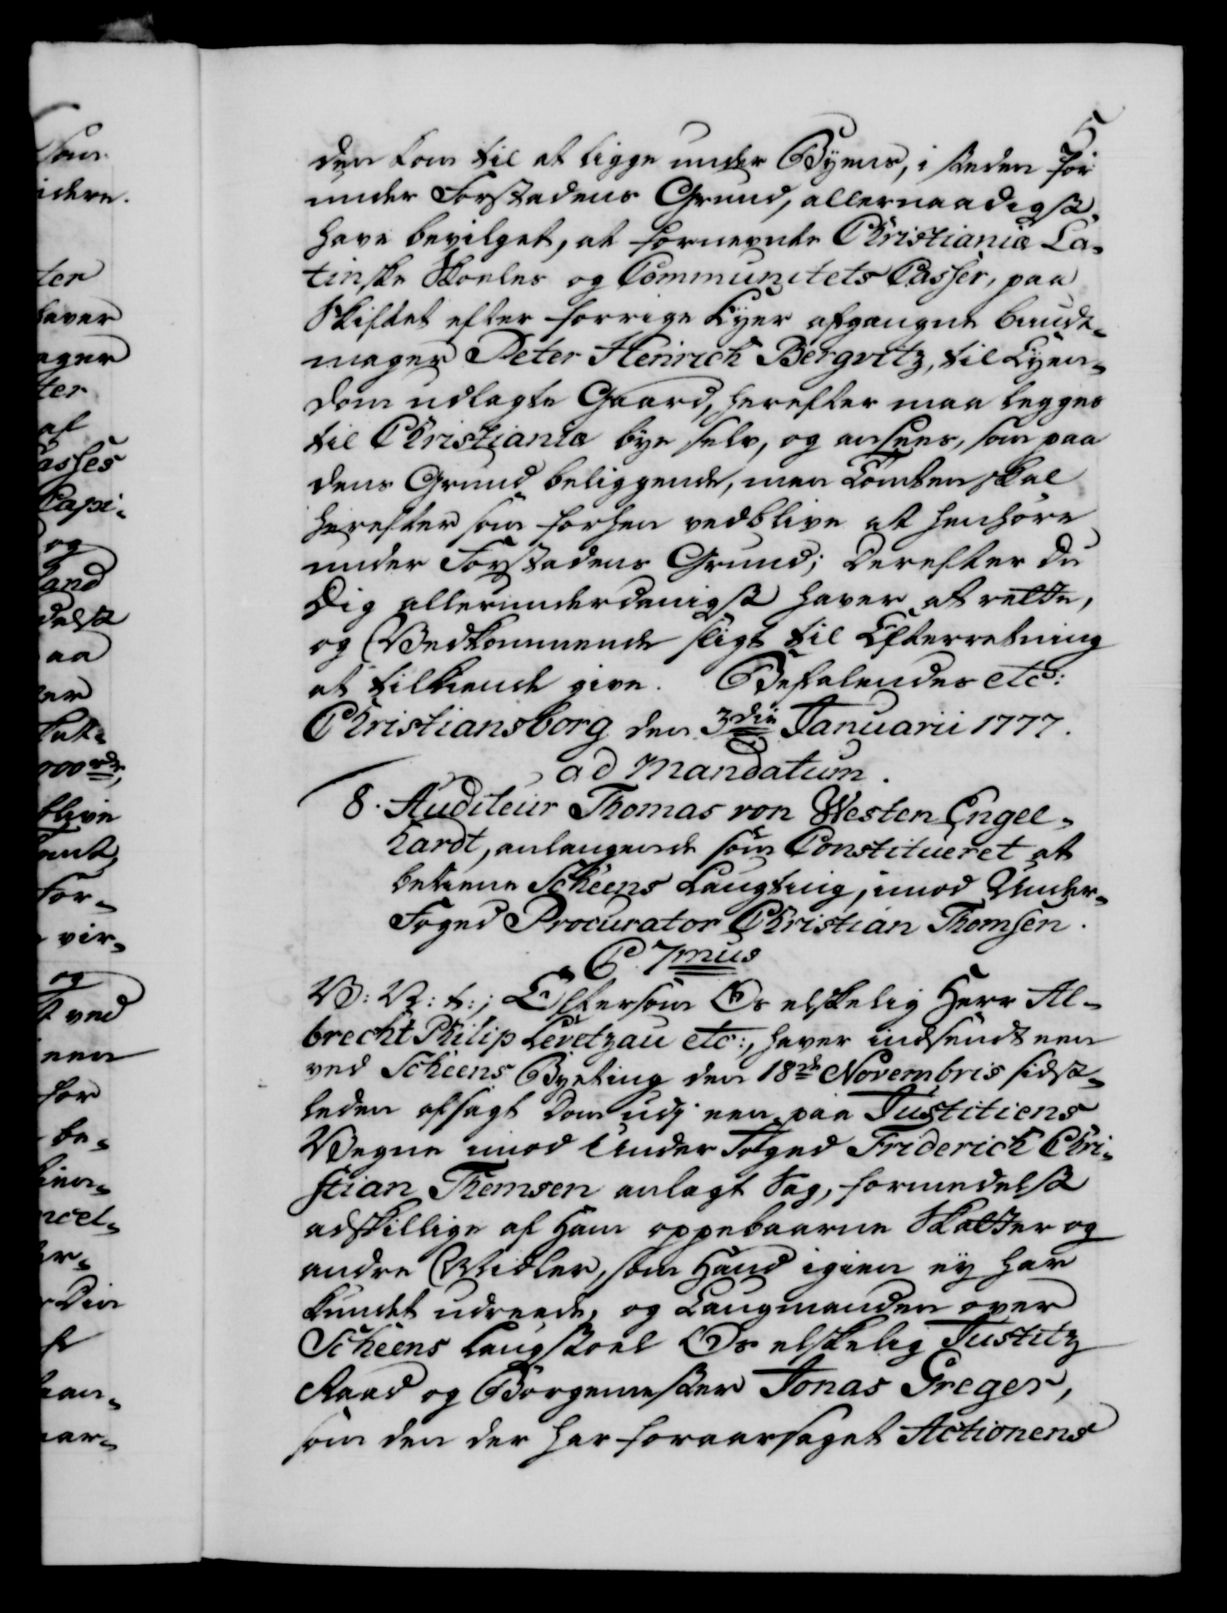 5
den kom til at ligge under Byens, i steden for
under Forstadens Grund, allernaadigst
have bevilget, at fornevnte Christianiæ La-
tinske Skoeles og Communitets Casser, paa
Skiftet efter forrige Eyer afgangne bundt-
mager Peter Henrich Bergvitz, til Eyen-
dom udlagte Gaard, herefter maa legges
til Christiania bye selv, og ansees, som paa
dens Grund beliggende, men Tomten skal
herefter som forhen vedblive at henhøre
under Forstadens Grund; Derefter Du
Dig allerunderdanigst haver at rette,
og Vedkommende sligt til Efterretning
at tilkiende give. Befalendes etc:
Christiansborg den 3die Januarii 1777.
ad Mandatum.
8. Auditeur Thomas von Westen Engel-
hardt, anlangende som Constitueret at
betiene Scheens Laugting, imod Under-
Foged Procurator Christian Thomsen.
C 7mus
V: V: t:; Eftersom Os elskelig Herr Al-
brecht Philip Levetzau etc:, haver indsendt een
ved Scheens Byeting den 18de Novembris sidst-
leden afsagt Dom udj een paa Justitiens
Vegne imod Under Foged Friderich Chri-
stian Themsen anlagt Sag, formedelst
adskillige af Ham oppebaarne Skatter og
andre Midler, som Hand igien ey har
kundet udreede, og Laugmanden over
Scheens Laugstoel Os elskelig Justitz
Raad og Borgemester Jonas Greger,
som den der har foraarsaget Actionens